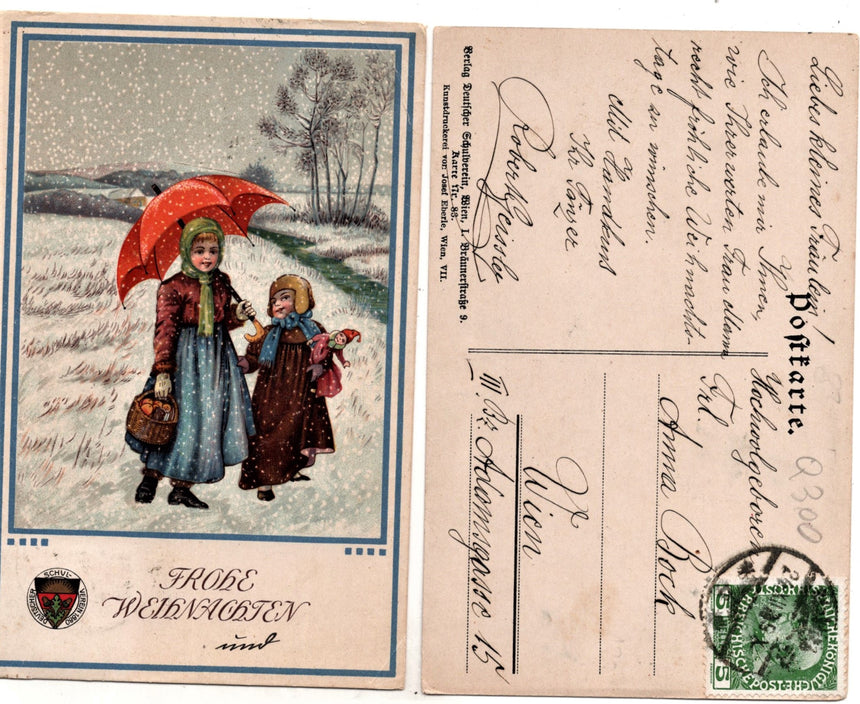 FROHE
WEIHNACHTEN
und
DEUTSCHER SCHUL-VEREIN 1880
Postkarte.
Liebes kleines Fräulein!
Ich erlaube mir Ihnen,
wie Ihrer werten Frau Mama
recht fröhliche Weihnachts-
tage zu wünschen.
Mit Handkuss
Ihr Tänzer
Robert Geissler
Verlag Deutscher Schulverein, Wien, I. Bräunerstraße 9.
Karte Nr. 83.
Kunstdruckerei von Josef Eberle, Wien, VII.
Hochwolgeboren
Frl.
Anna Bock
Wien
III. Bz. Adamsgasse 15
2300
5 5